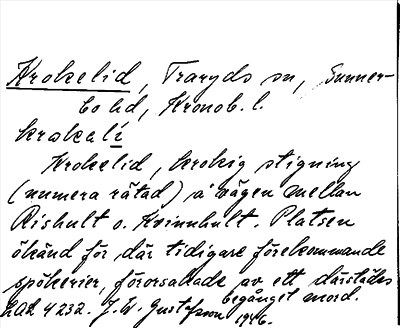 Krokelid, Traryds sn, Sunner-
bo hd, Kronob. l.
krokəlí
Krokelid, krokig stigning
(numera rätad) å vägen mellan
Rishult o. Kvinnhult. Platsen
ökänd för där tidigare förekommande
spökerier, förorsakade av ett därstädes
begånget mord.
LAL 4232. J. W. Gustafsson 1926.